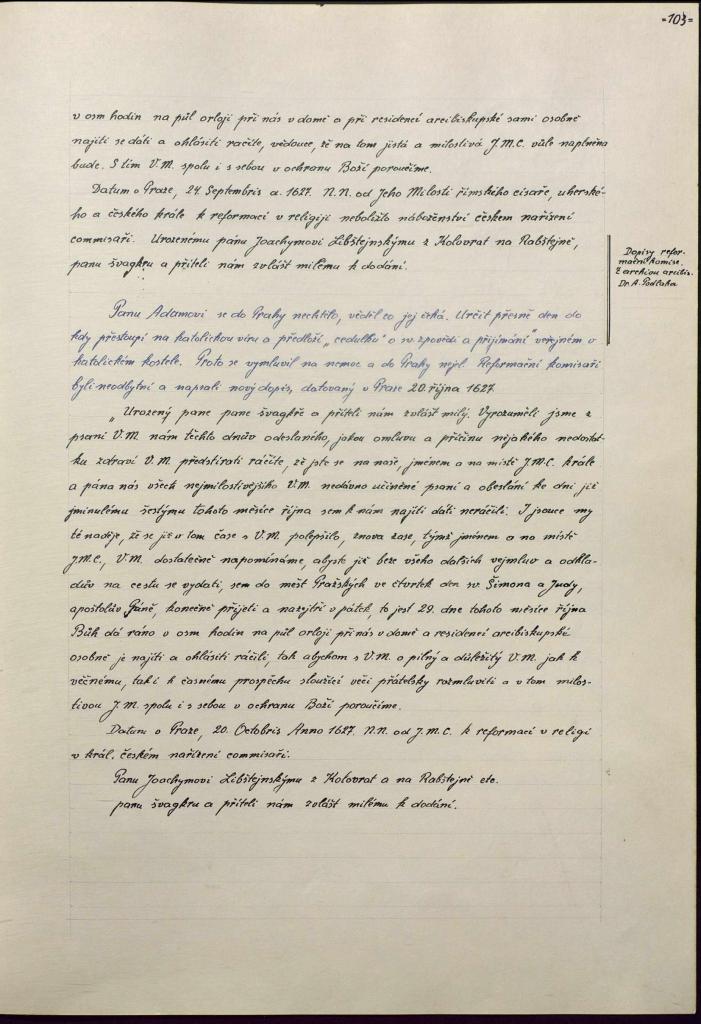 =103=
v osm hodin na půl orloji při nás v domě a při residencí arcibiskupské sami osobně
najíti se dáti a ohlásiti račíte, vědouce, že na tom jistá a milostivá J.M.C. vůle naplněna
bude. S tím V.M. spolu i s sebou v ochranu Boží poroučíme.
Datum v Praze, 24. Septembris a. 1627. N.N. od Jeho Milosti římského císaře, uherské-
ho a českého krále k reformací v religiji neboližto náboženství českém nařízení
commisaři. Urozenému pánu Joachymovi Libštejnskýmu z Kolovrat na Rabštejně,
panu švagru a příteli nám zvlášť milému k dodání.
Dopisy refor-
mační komise.
Z archivu arcibis.
Dr. A. Podlaha
Panu Adamovi se do Prahy nechtělo, věděl co jej čeká. Určit přesně den do
kdy přestoupí na katolickou víru a předloží „cedulku" o sv. zpovědi a přijímání" veřejném v
katolickém kostele. Proto se vymluvil na nemoc a do Prahy nejel. Reformační komisaři
byli neodbytní a napsali nový dopis, datovaný v Praze 20. října 1627.
„Urozený pane pane švagře a příteli nám zvlášť milý. Vyrozuměli jsme z
psaní V.M. nám těchto dnův odeslaného, jakou omluvu a příčinu nějakého nedostat-
ku zdraví V.M. předstírati ráčíte, že jste se na naše, jménem a na místě J.M.C. krále
a pána nás všech nejmilostivějšího V.M. nedávno učiněné psaní a obeslání ke dni již
jminulému šestýmu tohoto měsíce října sem k nám najíti dáti neráčili. I jsouce my
té naděje, že se již v tom čase s V.M. polepšilo, znova zase, týmž jménem a na místě
J.M.C., V.M. dostatečně napomínáme, abyste již beze všeho dalších vejmluv a odkla-
dův na cestu se vydati, sem do měst Pražských ve čtvrtek den sv. Šimona a Judy,
apoštolův Páně, konečně přijeti a nazejtří v pátek, to jest 29. dne tohoto měsíce října
Bůh dá ráno v osm hodin na půl orloji při nás v domě a residencí arcibiskupské
osobně je najíti a ohlásiti ráčili, tak abychom s V.M. o pilný a důležitý V.M. jak k
věčnému, tak i k časnému prospěchu sloužící věci přátelsky rozmluviti a v tom milos-
tivou J.M. spolu i s sebou v ochranu Boží poroučíme.
Datum v Praze, 20. Octobris Anno 1627. N.N. od J.M.C. k reformací v religi
v král. českém nařízení commisaři.
Panu Joachymovi Libštejnskýmu z Kolovrat a na Rabštejně etc.
panu švagru a příteli nám zvlášť milému k dodání.